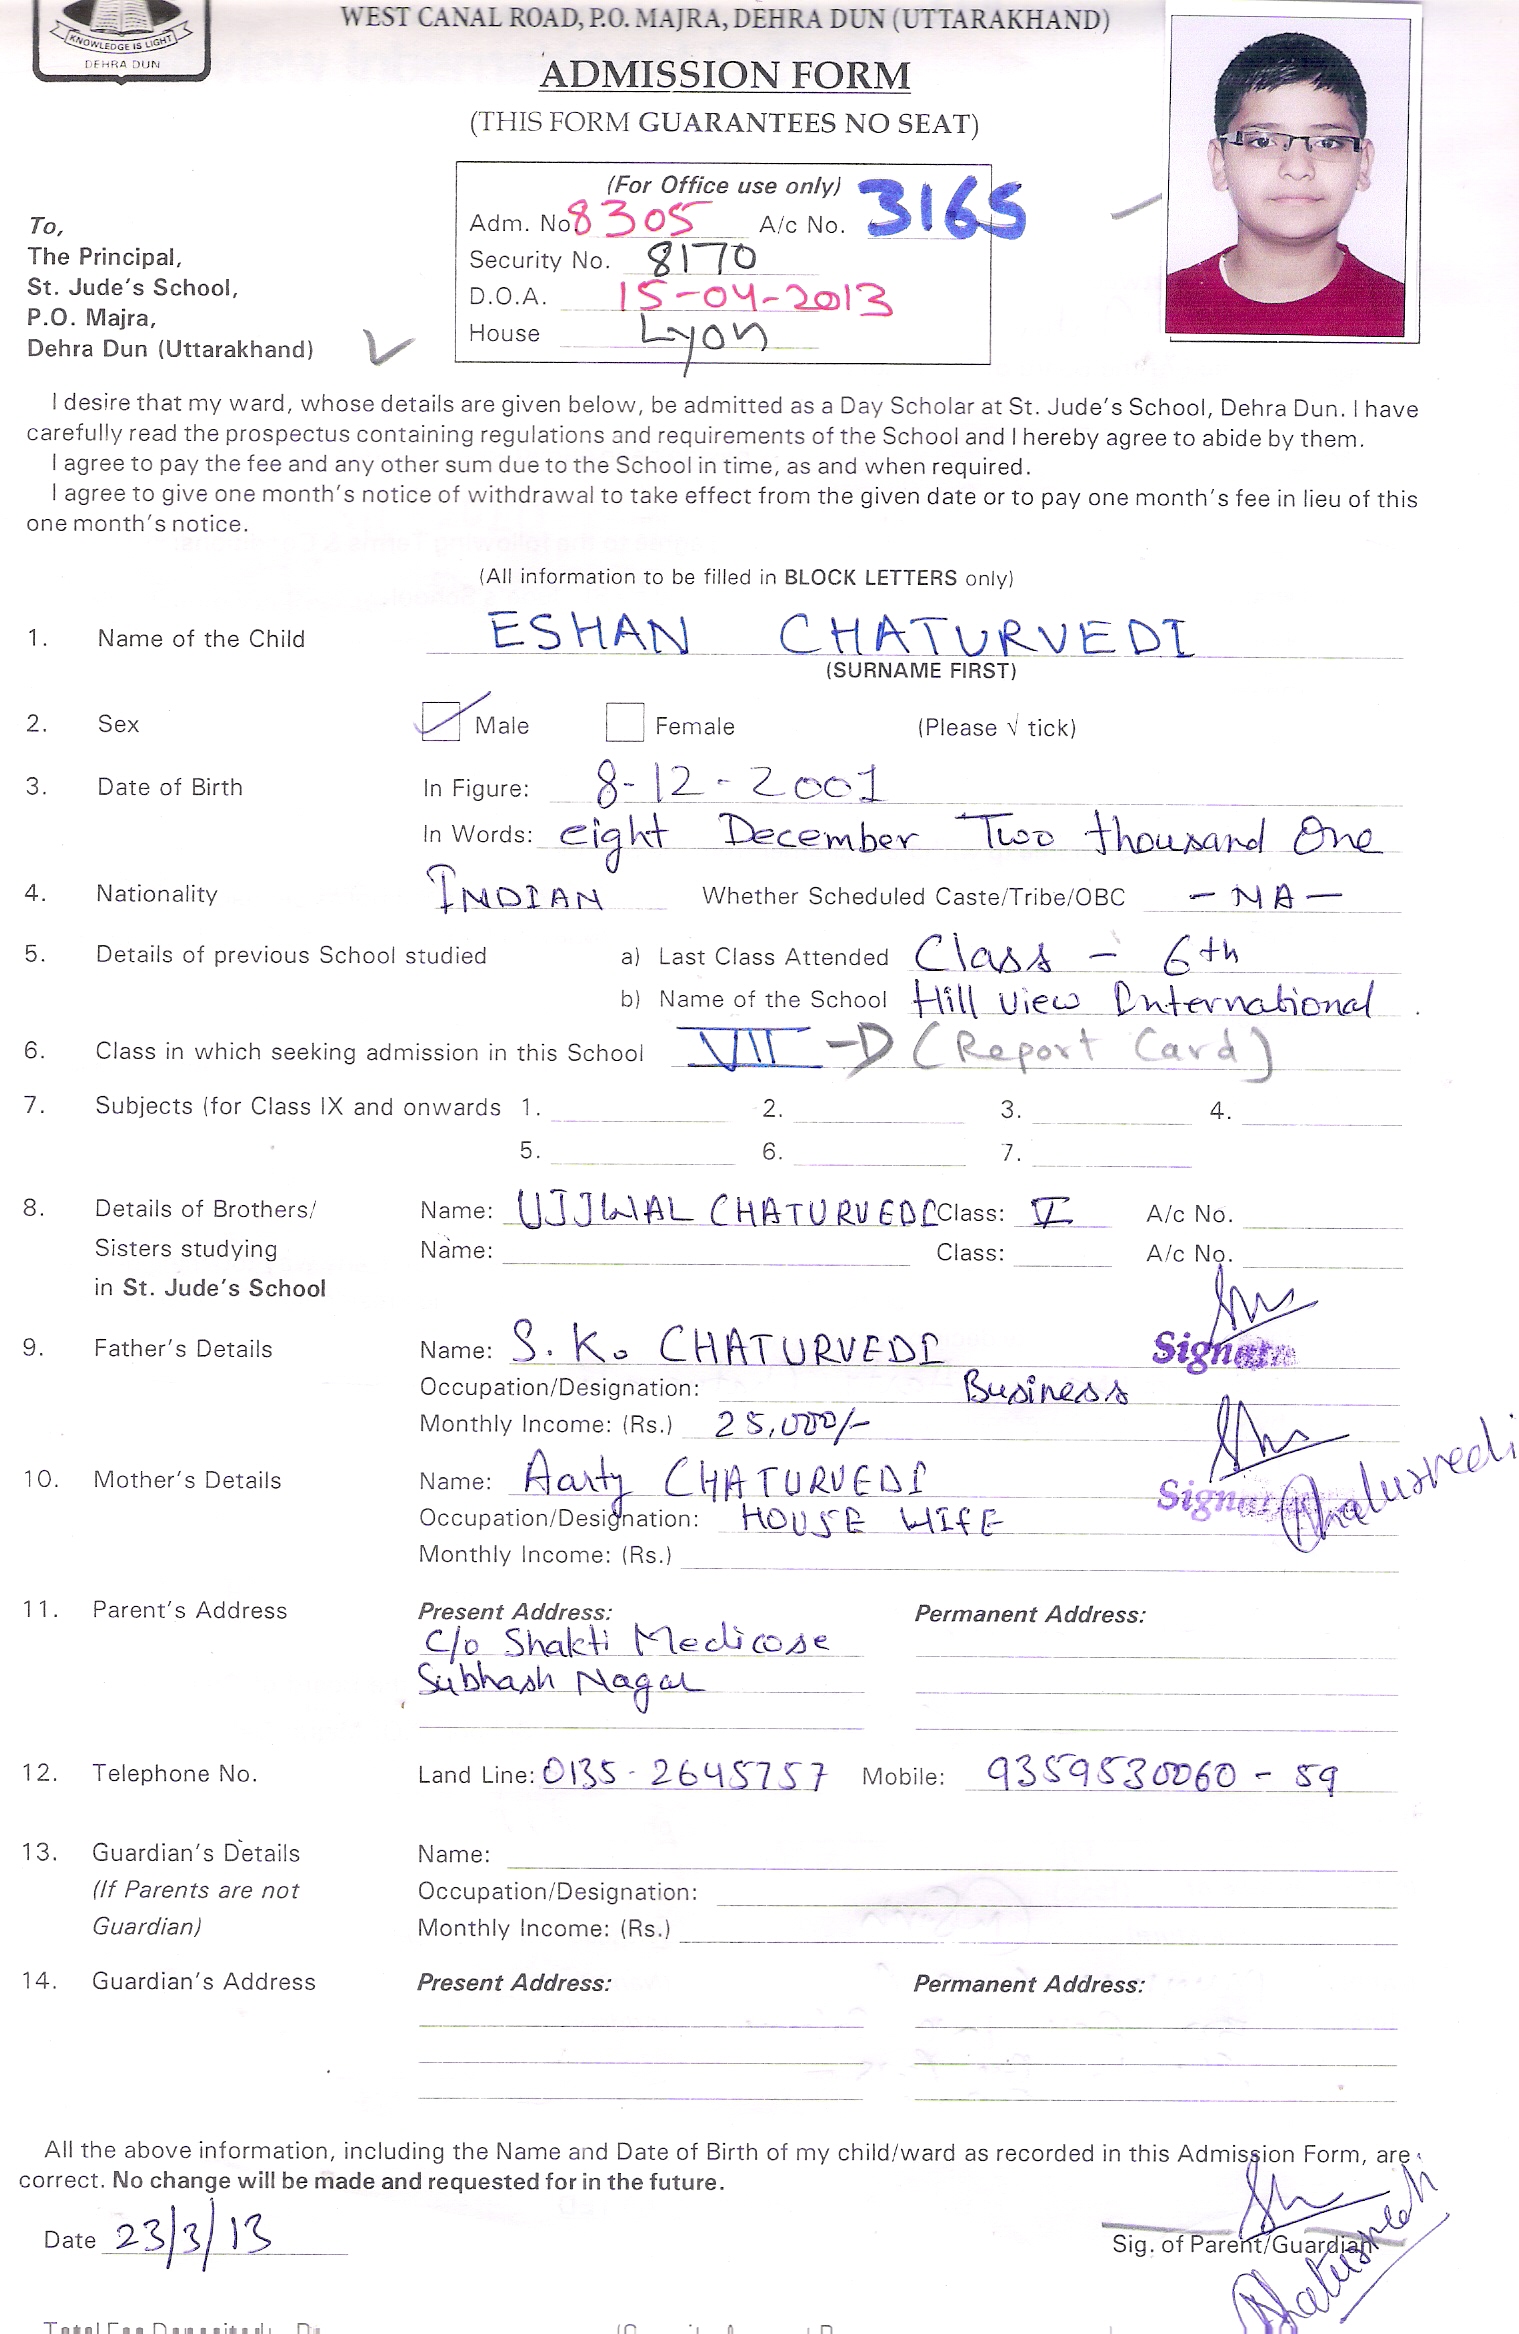 KNOWLEDGE IS LIGHT
DEHRA DUN
WEST CANAL ROAD, P.O. MAJRA, DEHRA DUN (UTTARAKHAND)
ADMISSION FORM
(THIS FORM GUARANTEES NO SEAT)
(For Office use only)
Adm. No. 8305 A/c No. 3165
Security No. 8170
D.O.A. 15-04-2013
House Lyon
To,
The Principal,
St. Jude's School,
P.O. Majra,
Dehra Dun (Uttarakhand)
I desire that my ward, whose details are given below, be admitted as a Day Scholar at St. Jude's School, Dehra Dun. I have
carefully read the prospectus containing regulations and requirements of the School and I hereby agree to abide by them.
I agree to pay the fee and any other sum due to the School in time, as and when required.
I agree to give one month's notice of withdrawal to take effect from the given date or to pay one month's fee in lieu of this
one month's notice.
(All information to be filled in BLOCK LETTERS only)
1. Name of the Child ESHAN CHATURVEDI
(SURNAME FIRST)
2. Sex Male Female (Please √ tick)
3. Date of Birth In Figure: 8-12-2001
In Words: eight December Two thousand One
4. Nationality INDIAN Whether Scheduled Caste/Tribe/OBC - NA -
5. Details of previous School studied a) Last Class Attended Class - 6th
b) Name of the School Hill View International
6. Class in which seeking admission in this School VII - D (Report Card)
7. Subjects (for Class IX and onwards 1. 2. 3. 4.
5. 6. 7.
8. Details of Brothers/ Name: UJJWAL CHATURVEDI Class: V A/c No.
Sisters studying Name: Class: A/c No.
in St. Jude's School
9. Father's Details Name: S. K. CHATURVEDI
Occupation/Designation: Business
Monthly Income: (Rs.) 25,000/-
10. Mother's Details Name: Aarty CHATURVEDI Chaturvedi
Occupation/Designation: HOUSE WIFE
Monthly Income: (Rs.)
11. Parent's Address Present Address: Permanent Address:
C/o Shakti Medicose
Subhash Nagar
12. Telephone No. Land Line: 0135-2645757 Mobile: 9359530060 - 59
13. Guardian's Details Name:
(If Parents are not Occupation/Designation:
Guardian) Monthly Income: (Rs.)
14. Guardian's Address Present Address: Permanent Address:
All the above information, including the Name and Date of Birth of my child/ward as recorded in this Admission Form, are
correct. No change will be made and requested for in the future.
Date 23/3/13
Sig. of Parent/Guardian
Chaturvedi